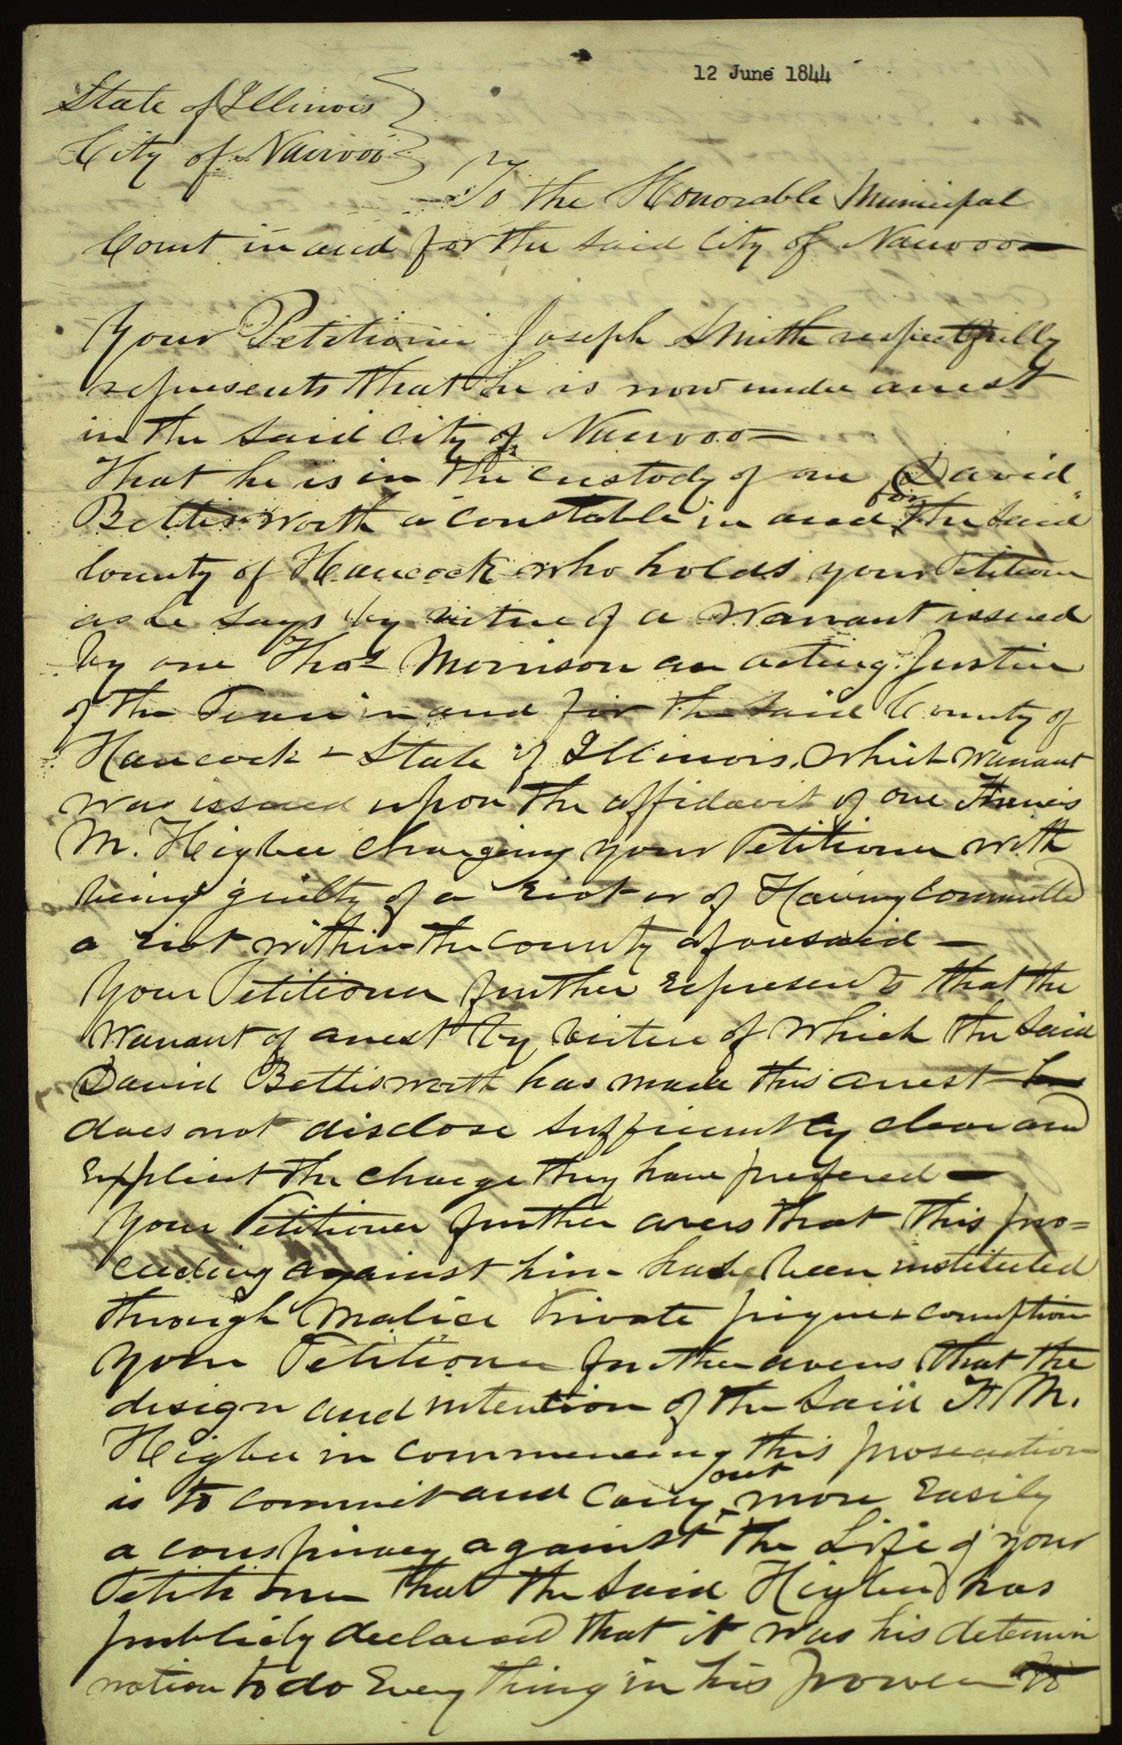 12 June 1844
State of Illinois
City of Nauvoo
To the Honorable Municipal
Court in and for the said City of Nauvoo
Your Petitioner Joseph Smith respectfully
represents that he is now under arrest
in the said City of Nauvoo
That he is in the custody of one David
Bettisworth a constable in and for the said
County of Hancock who holds your Petitioner
as he says by virtue of a Warrant issued
by one Thos Morrison an acting Justice
of the Peace in and for the said County of
Hancock & State of Illinois, which warrant
was issued upon the affidavit of one Francis
M. Higbee charging your Petitioner with
being guilty of a riot or of Having committed
a riot within the county aforesaid —
Your Petitioner further represents that the
Warrant of arrest by virtue of which the said
David Bettisworth has made this arrest
does not disclose sufficiently clear and
Explicit the charge they have prefered —
Your Petitioner further avers that this pro=
ceeding against him has been instituted
through Malice Private pique & corruption
Your Petitioner further avers that the
design and intention of the said F. M.
Higbee in commencing this prosecution
is to commit and carry out more Easily
a conspiracy against the Life of your
Petitioner that the said Higbee has
publicly declared that it was his determi
nation to do Every thing in his power to